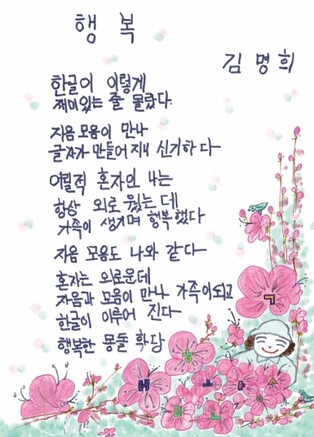 행복
김명희
한글이 이렇게
재미있는 줄 몰랐다.
자음 모음이 만나
글자가 만들어 지니 신기하다
어릴적 혼자인 나는
항상 외로웠는데
가족이 생기며 행복했다
자음 모음도 나와 같다
혼자는 외로운데
자음과 모음이 만나 가족이되고
한글이 이루어 진다
행복한 몽돌 학당
ㄱ